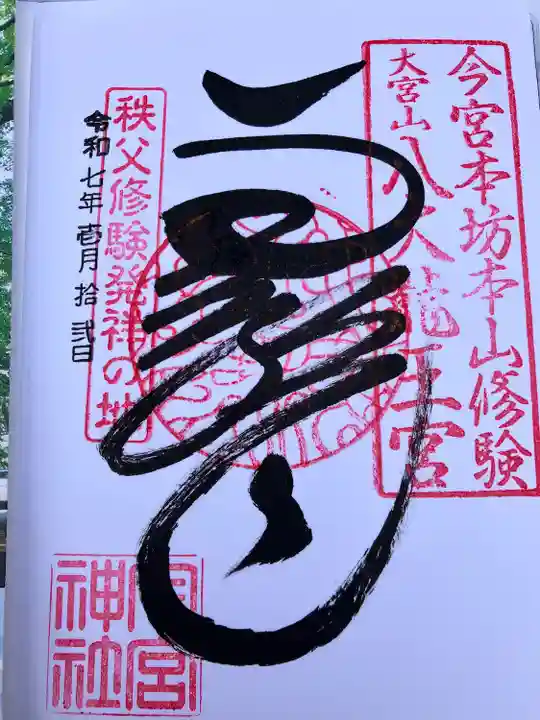 今宮本坊本山修験
大宮山八大龍王宮
秩父修験発祥の地
令和七年壱月拾弐日
今宮神社